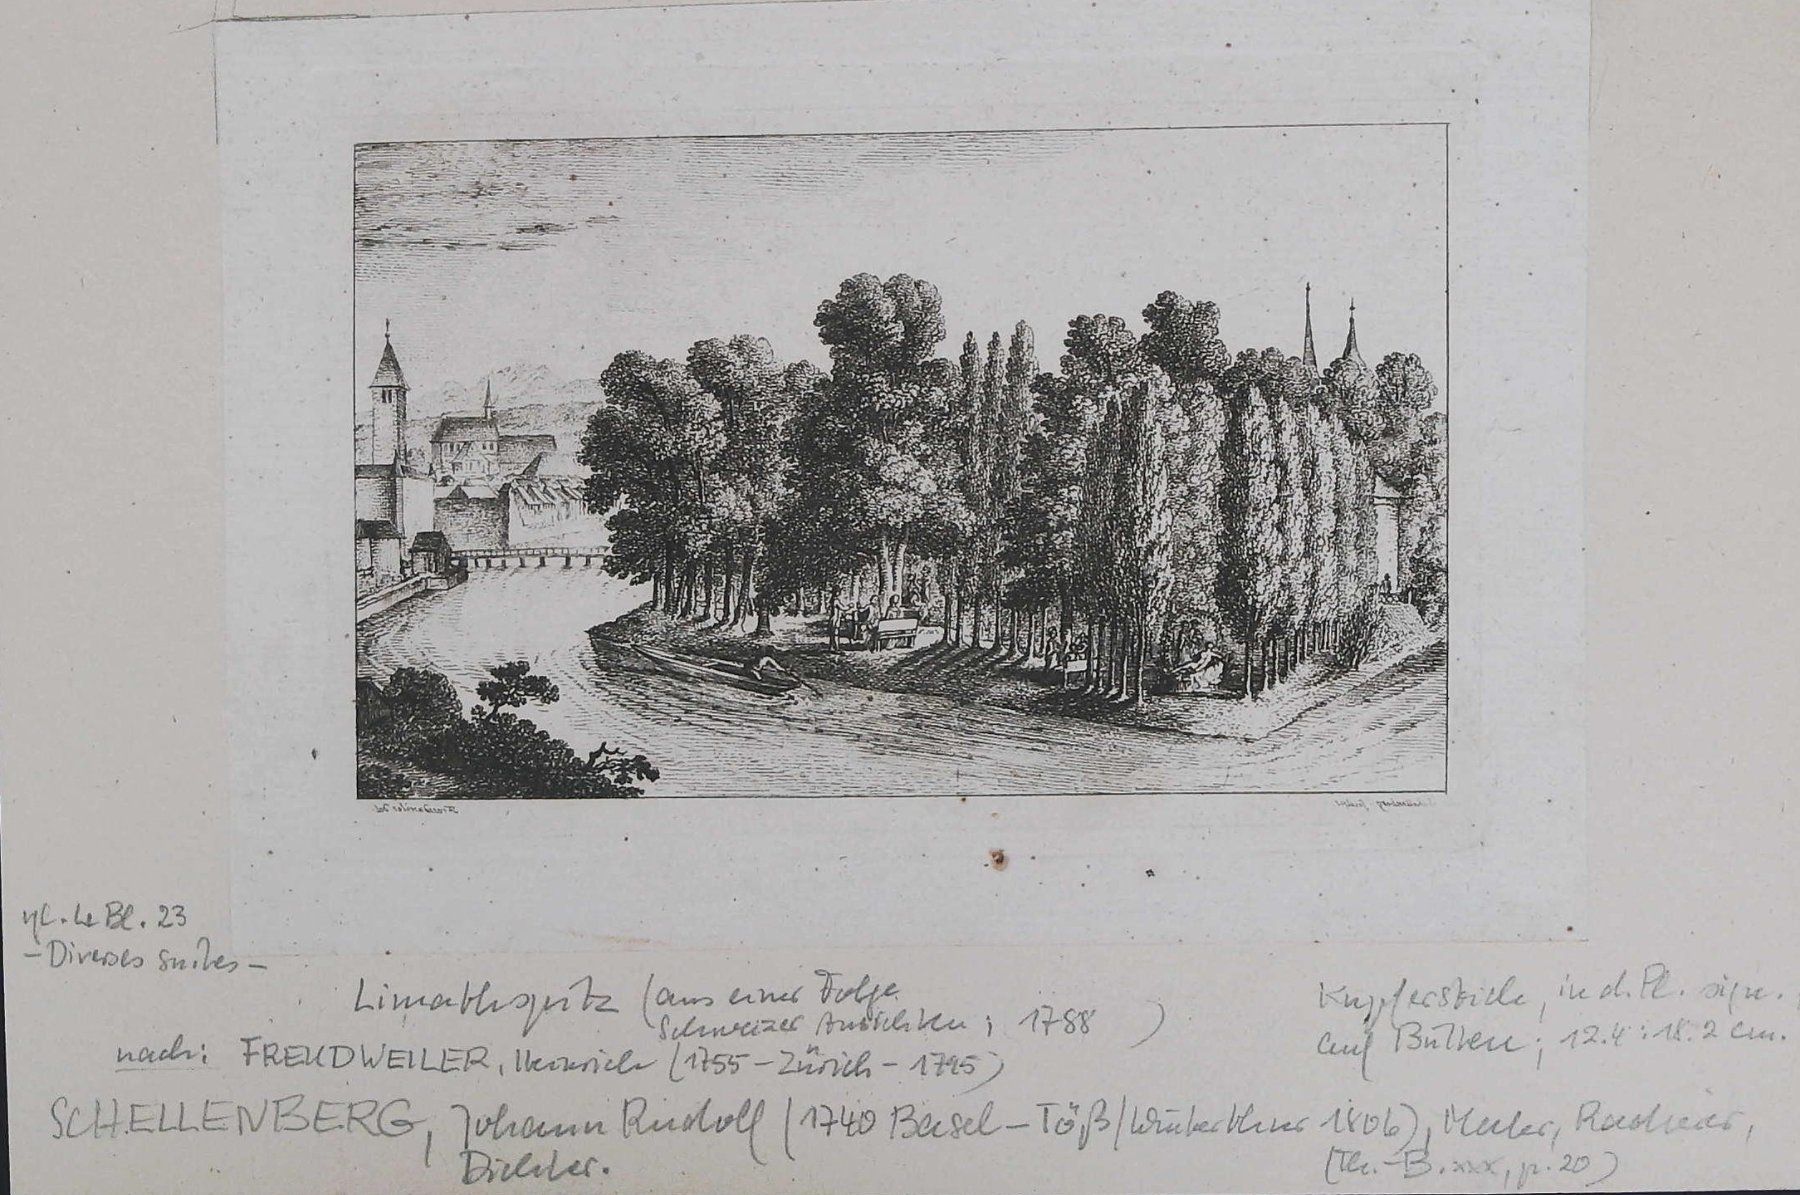 Freudweiler del.
Schellenberg fecit
vgl. Le Bl. 23
- Diverses suites -
Limathspitz (aus einer Folge
Schweizer Ansichten; 1788 )
Kupferstich, in d. Pl. sign.,
auf Bütten; 12.4 : 18.2 cm.
nach: FREUDWEILER, Heinrich (1755 - Zürich - 1795)
SCHELLENBERG, Johann Rudolf (1740 Basel - Töß/Winterthur 1806), Maler, Radierer,
Dichter.
(Th.-B. XXX, p. 20)